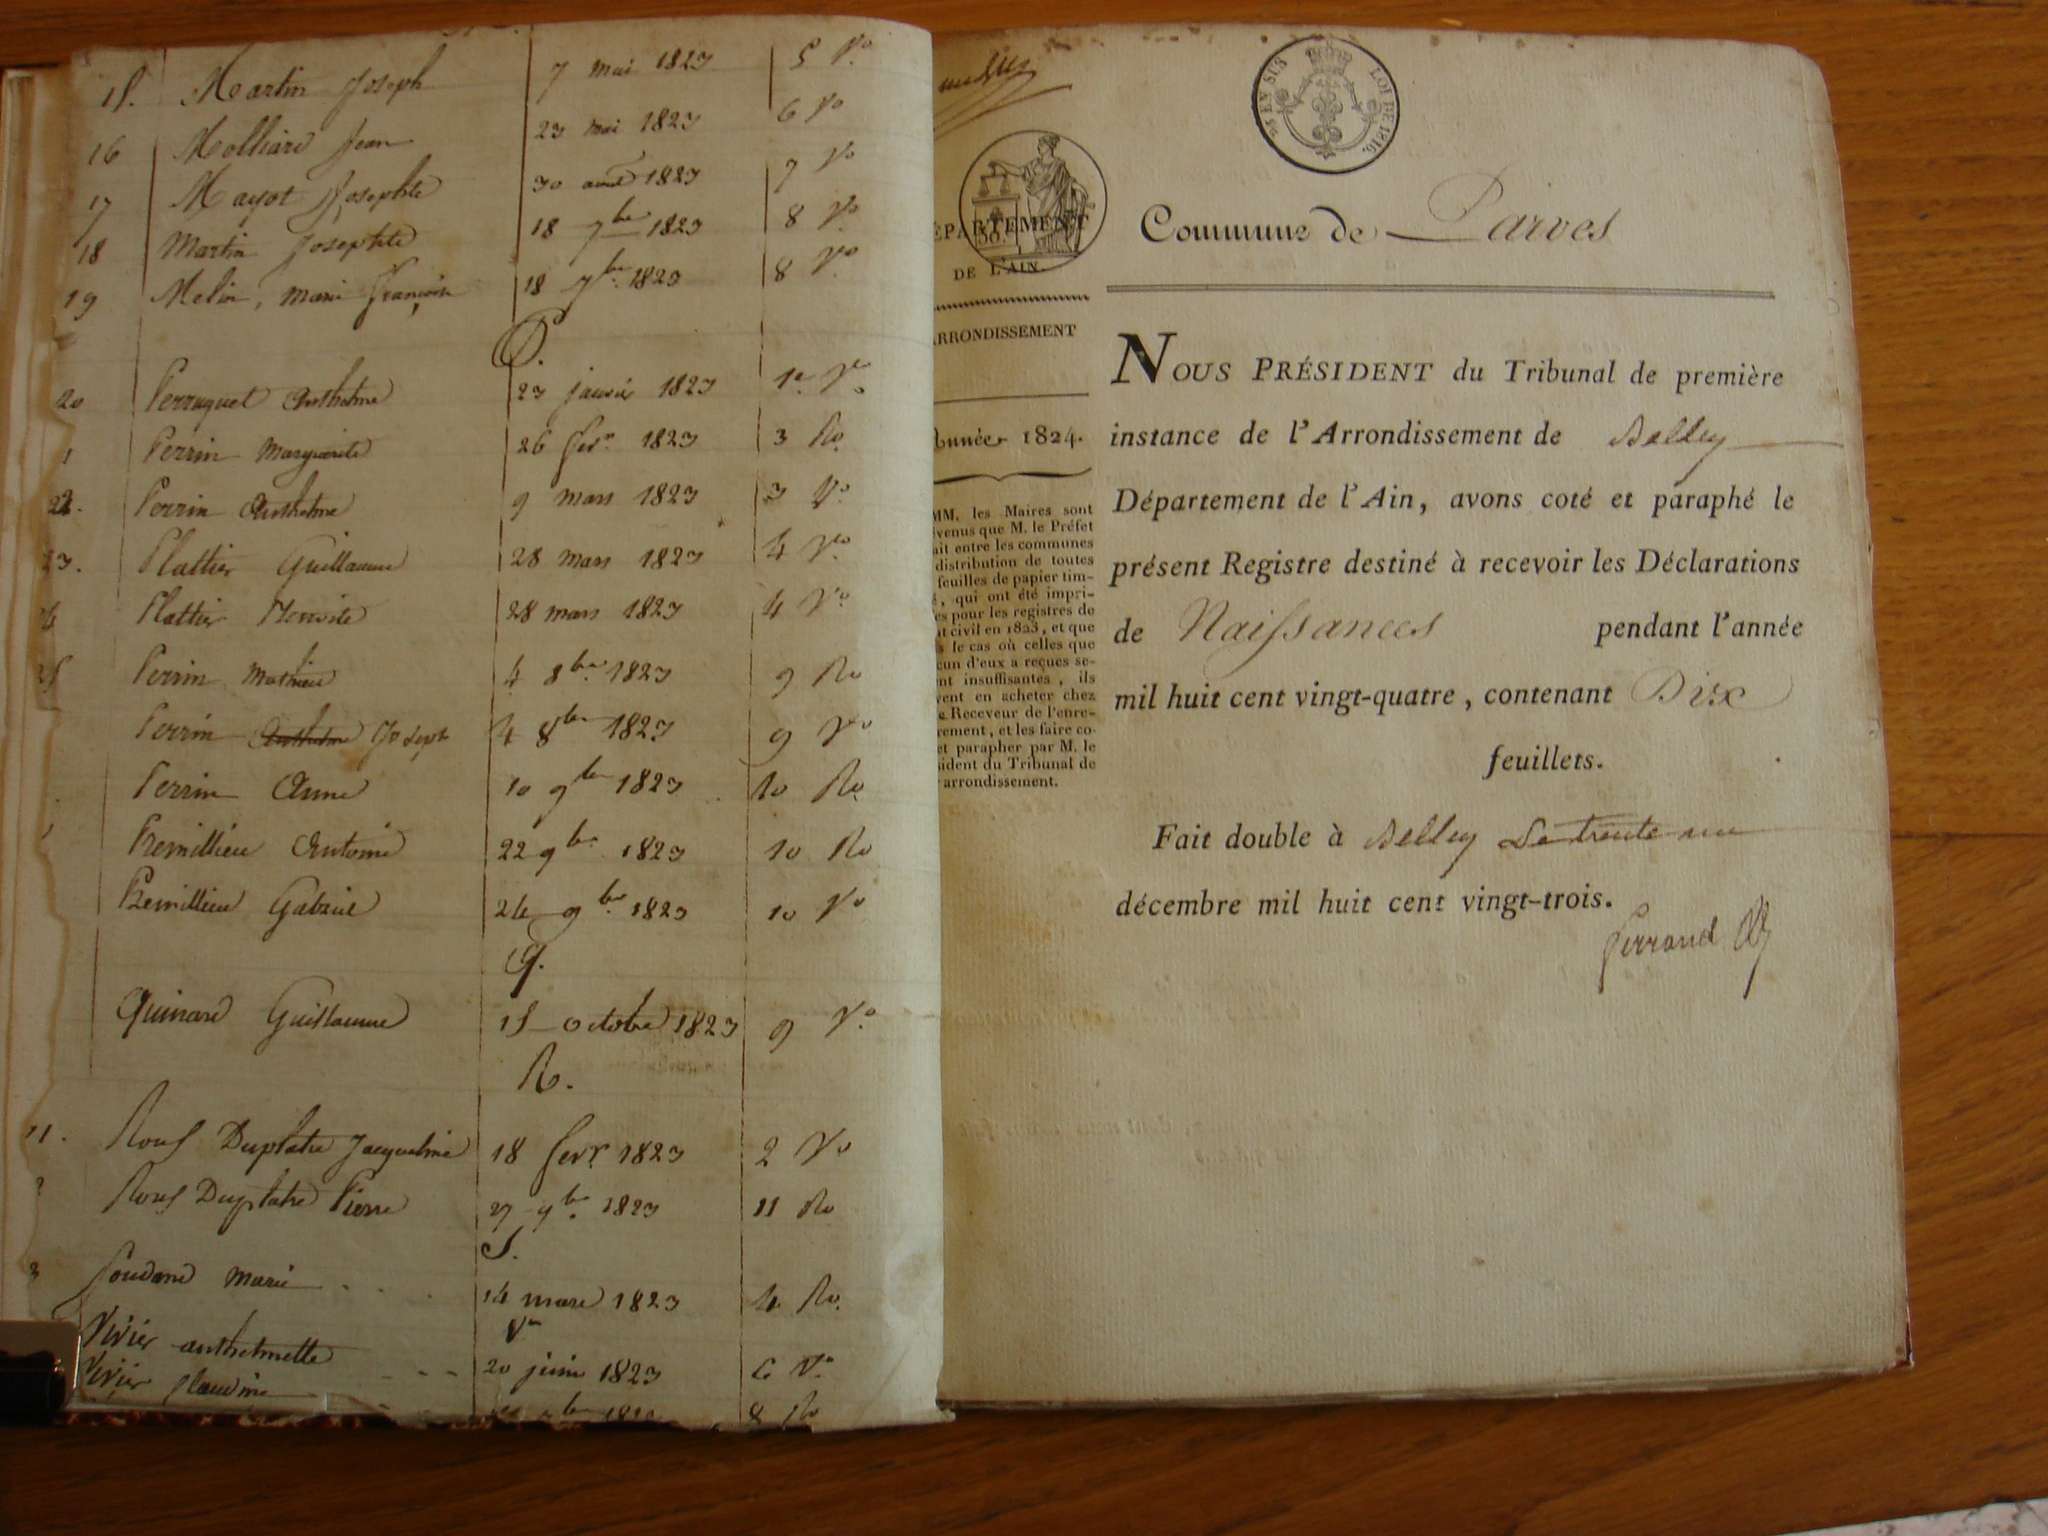 15. Martin Joseph 7 mai 1823 5 Vo.
16 Molliard Jean 23 mai 1823 6 Vo
17 Mayot Josephte 30 aout 1823 7 Vo
18 Martin Josephte 18 7bre 1823 8 Vo.
19 Melin, marie françoise 18 7bre 1823 8 Vo
P.
20 Perruquet Anthelme 23 janvier 1823 1er Vo.
1 Perrin Marguerite 26 fevr. 1823 3 Ro.
22. Perrin Anthelme 9 mars 1823 3 Vo
23. Plattier Guillaume 28 mars 1823 4 Vo.
24 Plattier 28 mars 1823 4 Vo.
25 Perrin Mathieu 4 8bre 1823 9 Ro
Perrin Anthelme Joseph 4 8bre 1823 9 Vo
Perrin Anne 10 9bre 1823 10 Ro.
Premillieu Antoine 22 9bre 1823 10 Ro
Premillieu Gabriel 24 9bre 1823 10 Vo
Q.
Quinard Guillaume 15 octobre 1823 9 Vo.
R.
11. Rouf Duplatre Jacqueline 18 fevr. 1823 2 Vo
Rouf Duplatre Pierre 27 9bre 1823 11 Ro
S.
3 Soudand marie 14 mars 1823 4 Ro.
V.
Vivier anthelmette 20 juin 1823 6 Vo.
Vivier 8 Ro
25 EN SUS LOI DE 1816.
ÉPARTEMENT
50.
DE L'AIN.
ARRONDISSEMENT
Année 1824.
MM. les Maires sont
évenus que M. le Préfet
ait entre les communes
distribution de toutes
feuilles de papier tim-
é, qui ont été impri-
es pour les registres de
at civil en 1823, et que
s le cas où celles que
cun d'eux a reçues se-
nt insuffisantes, ils
vent en acheter chez
e Receveur de l'enre-
rement, et les faire co-
et parapher par M. le
sident du Tribunal de
arrondissement.
Commune de Parves
NOUS PRÉSIDENT du Tribunal de première
instance de l'Arrondissement de Belley
Département de l'Ain, avons coté et paraphé le
présent Registre destiné à recevoir les Déclarations
de Naissances pendant l'année
mil huit cent vingt-quatre, contenant Dix
feuillets.
Fait double à Belley Le trente un
décembre mil huit cent vingt-trois.
Perrand